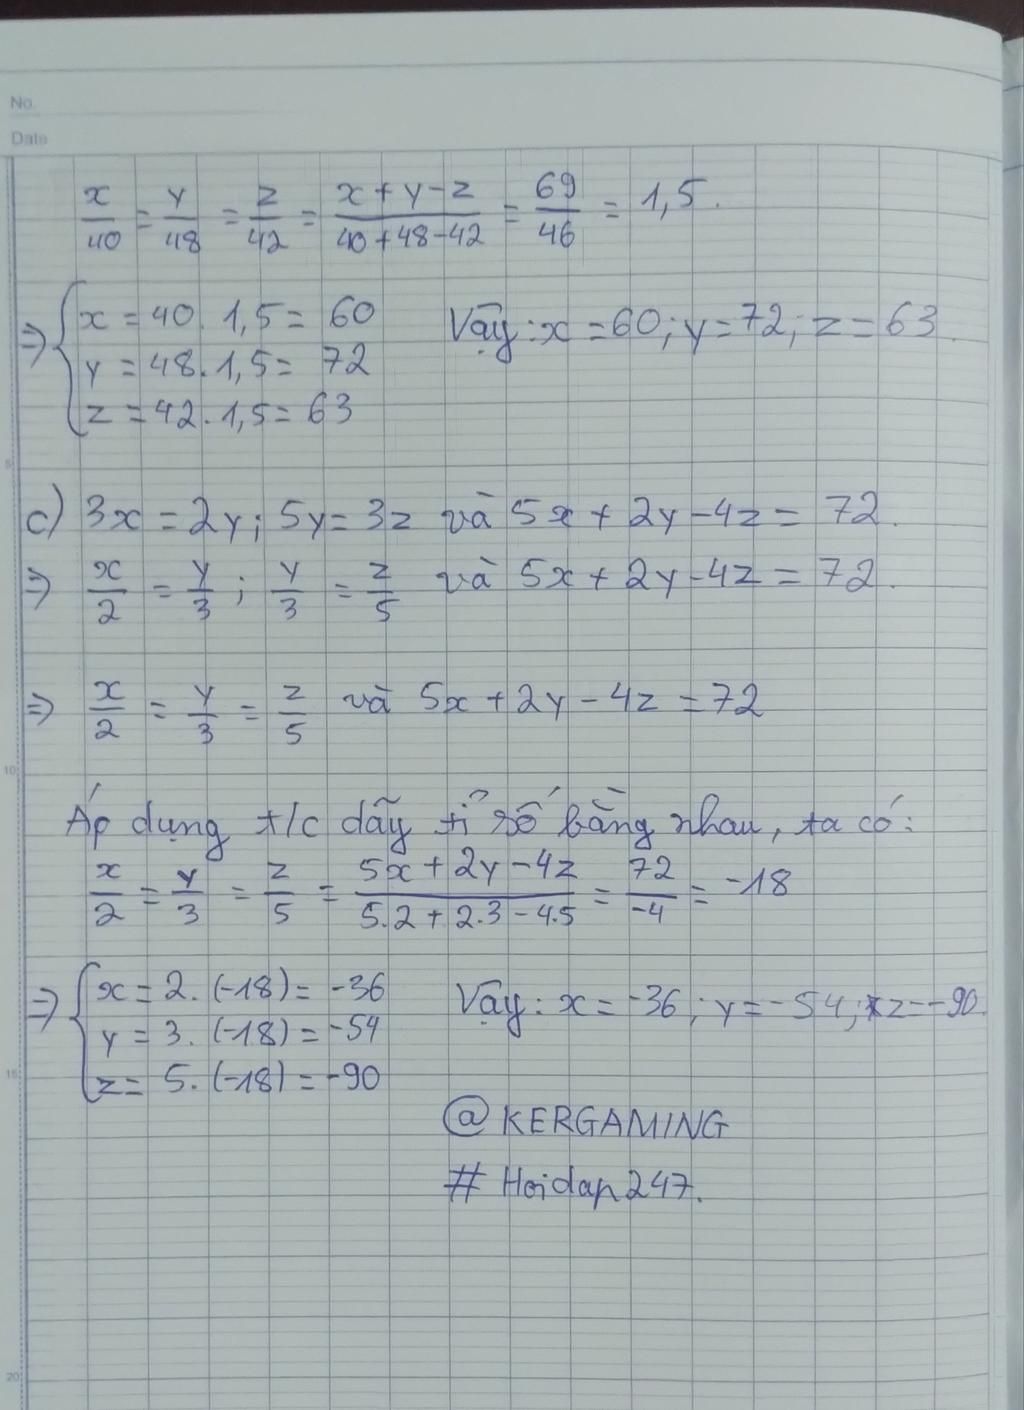 No.
Date
x/40 = y/48 = z/42 = (x + y - z)/(40 + 48 - 42) = 69/46 = 1,5.
⇒ { x = 40 . 1,5 = 60
y = 48 . 1,5 = 72
z = 42 . 1,5 = 63
Vậy : x = 60 ; y = 72 ; z = 63.
5
c) 3x = 2y ; 5y = 3z và 5x + 2y - 4z = 72.
⇒ x/2 = y/3 ; y/3 = z/5 và 5x + 2y - 4z = 72.
⇒ x/2 = y/3 = z/5 và 5x + 2y - 4z = 72
10
Áp dụng t/c dãy tỉ số bằng nhau, ta có :
x/2 = y/3 = z/5 = (5x + 2y - 4z)/(5.2 + 2.3 - 4.5) = 72/-4 = -18
⇒ { x = 2. (-18) = -36
y = 3. (-18) = -54
z = 5. (-18) = -90
Vậy : x = -36 ; y = -54 ; z = -90.
15
@ KERGAMING
# Hoidap247.
20